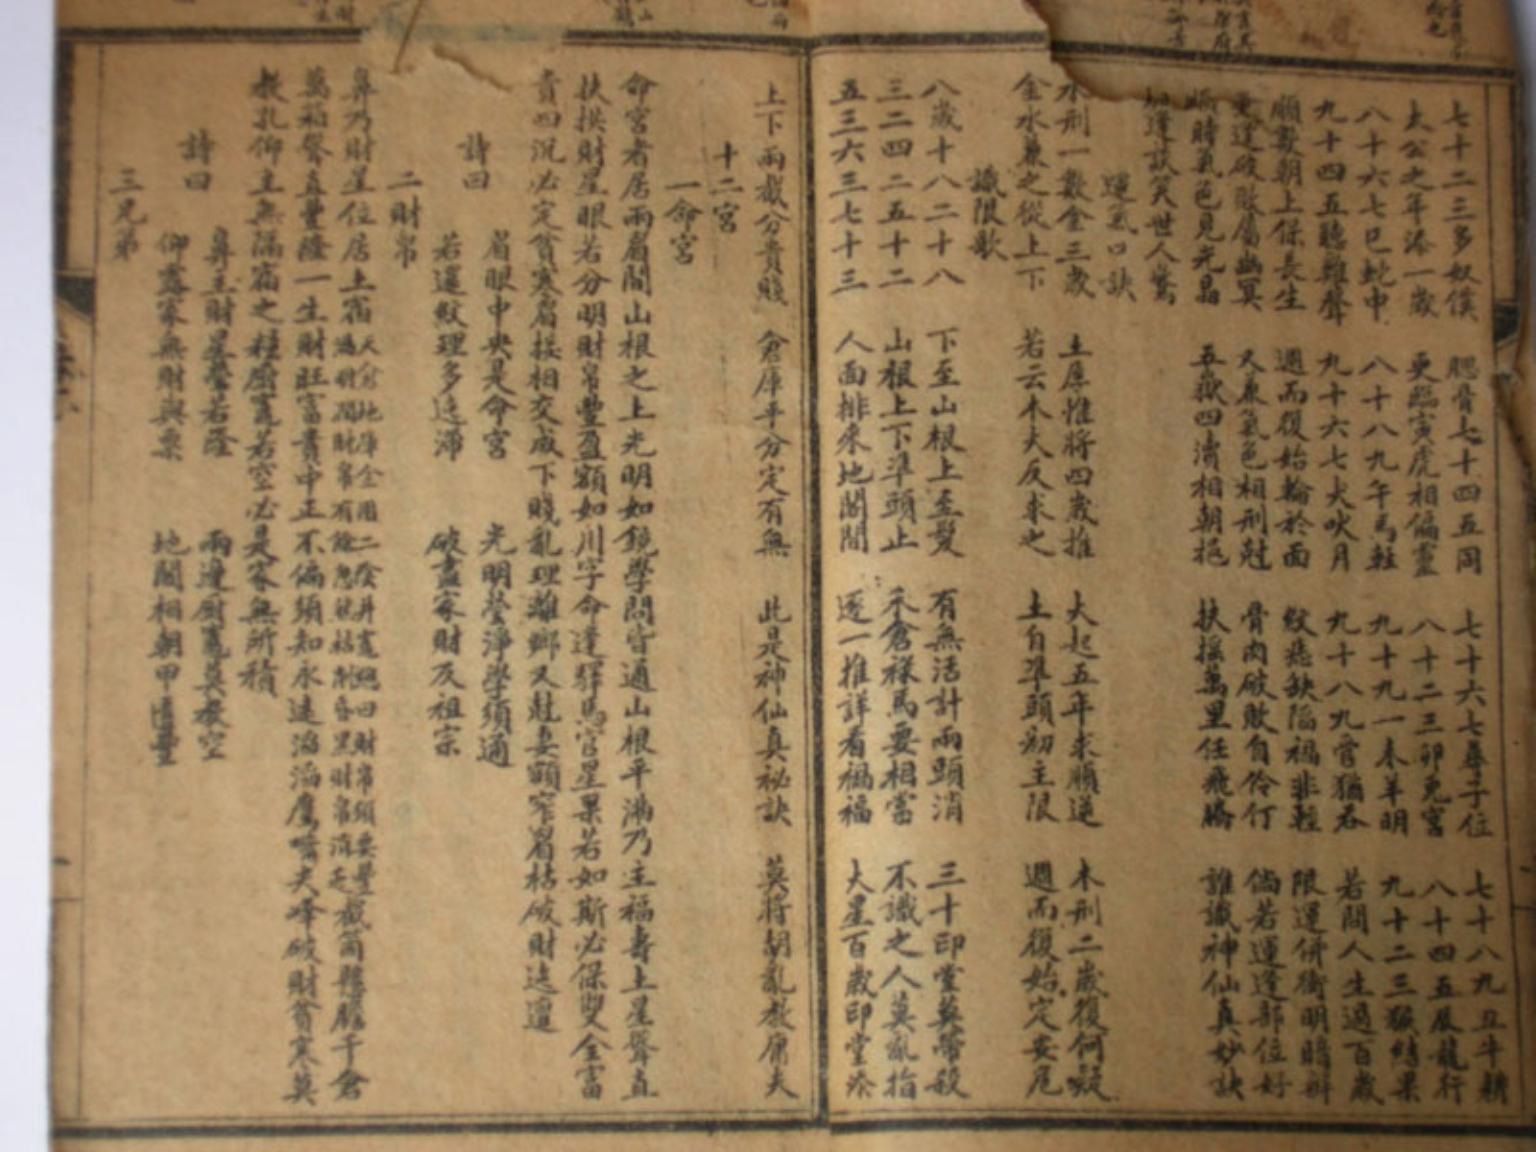 七十二三多奴僕　腮骨七十四五同　七十六七尋子位　七十八九丑牛耕
太公之年添一歲　更臨寅虎相偏靈　八十二三卯兔宮　八十四五辰龍行
八十六七巳蛇中　八十八九午馬輕　九十九一未羊明　九十二三猴結果
九十四五聽雞聲　九十六七犬吠月　九十八九豬吞　若問人生過百歲
順數朝上保長生　週而復始輪於面　紋痣缺陷禍非輕　限運併衝明暗辨
更逢破敗屬幽冥　又兼氣色相刑剋　骨肉破敗自伶仃　倘若運逢部位好
時氣色見光晶　五嶽四瀆相朝挹　扶搖萬里任飛騰　誰識神仙真妙訣
逢談笑世人驚
運氣口訣
水刑一數金三歲　土厚惟將四歲推　火起五年求順逆　木刑二歲復何疑
金水兼之從上下　若云木火反求之　土自準頭初主限　週而復始定安危
識限歌
八歲十八二十八　下至山根上至髮　有無活計兩頭消　三十印堂莫帶殺
三二四二五十二　山根上下準頭止　禾倉祿馬要相當　不識之人莫亂指
五三六三七十三　人面排來地閣間　逐一推詳看禍福　火星百歲印堂添
上下兩截分貴賤　倉庫平分定有無　此是神仙真秘訣　莫將胡亂教庸夫
十二宮
一命宮
命宮者居兩眉間山根之上光明如鏡學問皆通山根平滿乃主福壽土星聳直
扶拱財星眼若分明財帛豐盈額如川字命逢驛馬官星果若如斯必保雙全富
貴凹沉必定貧寒眉接相交成下賤亂理離鄉又尅妻額窄眉枯破財迍邅
詩曰　眉眼中央是命宮　光明瑩淨學須通
若還紋理多迍滯　破盡家財反祖宗
二財帛
鼻乃財星位居土宿天倉地庫金甲二陰井竈總曰財帛須要豐
千倉
萬箱聳直豐隆一生財旺富貴中正不偏須知永遠滔滔鷹嘴尖峰破財貧寒莫
教孔仰主無隔宿之糧廚竈若空必是家無所積
詩曰　鼻主財星瑩若隆　兩邊廚竈莫教空
仰露家無財與粟　地閣相朝甲匱豐
三兄弟